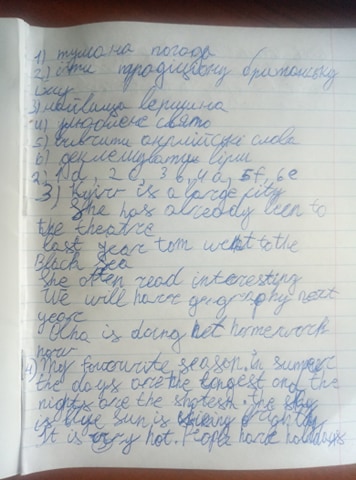 1) тумана погода
2) їсти традиційну британську
їжу
3) найвища вершина
4) улюблене свято
5) вивчити англійські слова
6) деклемувати вірш
2) 1d, 2c, 3b, 4a, 5f, 6e
3) Kyiv is a large city
She has already been to
the theatre
last year tom went to the
Black Sea
She often read interesting
We will have geography next
year
Olha is doing het homework
now
4) My favourite season in summer
the days are the longest and the
nights are the shotesn. the sky
is blye sun is shining brightly
It is very hot. People have holidays